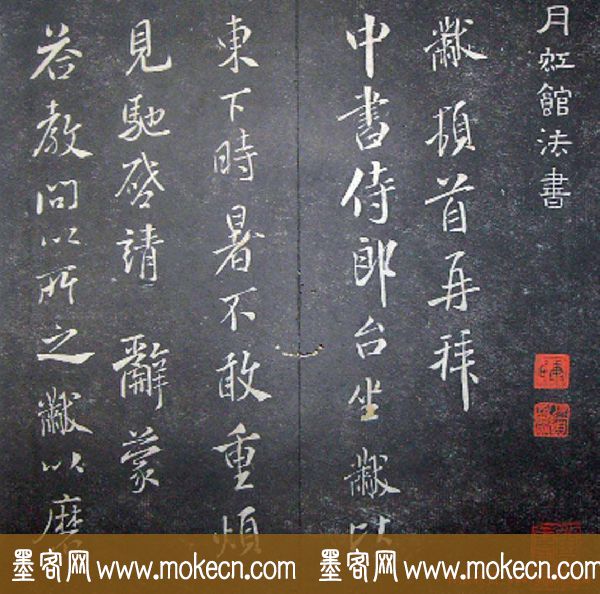 月虹館法書
黻頓首再拜
中書侍郎台坐黻以
東下時暑不敢重煩
見馳啓請 辭蒙
答教問以所之黻以磨
墨客网 www.mokecn.com 墨客网 www.mokecn.com